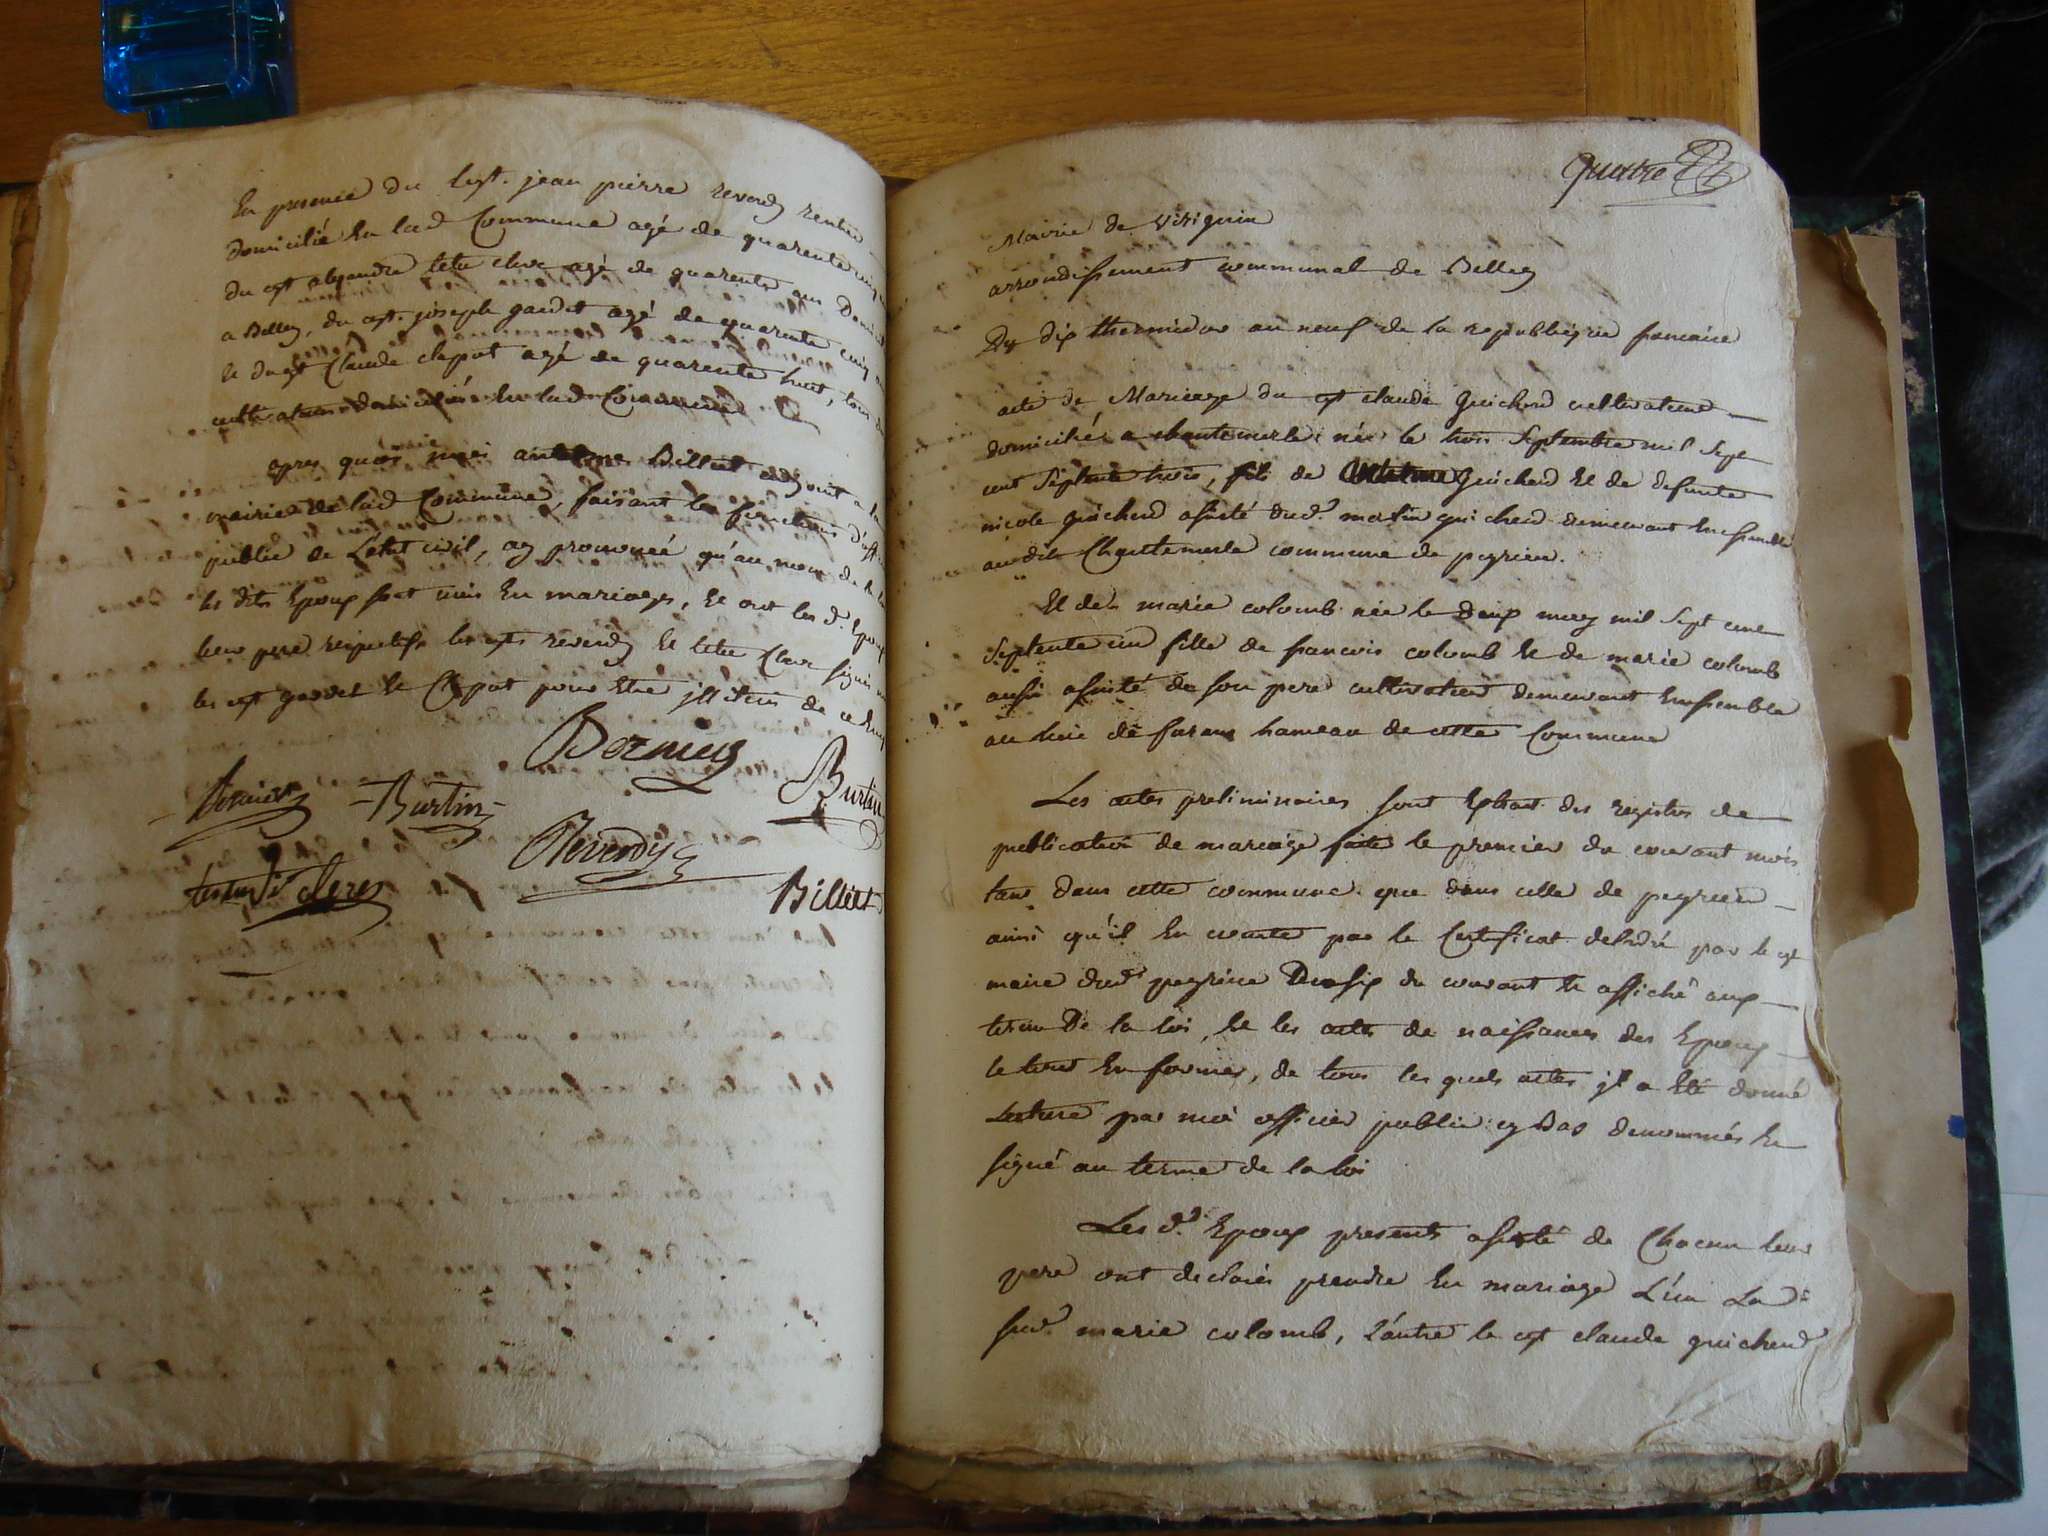 En presence du cyt. jean pierre reverdy rentier
domicilié En lad Commune agé de quarente cinq
du cyt alexandre tetu clerc agé de quarente ans Domicilié
a Belley, du cyt. joseph gardet agé de quarente cinq
le du cyt Claude clapot agé de quarente huit, tous
cultivateurs domiciliés En lad Commune
apres quoi moi antelme Billiet adjoint a la
mairie de lad Commune, faisant les fonctions d'officier
public de L'etat civil, ay prononcé qu'au nom de la loi
les dits Epoux sont unis En mariage, Et ont les d. Epoux
leur pere respectifs les cyts reverdy Et tetu Clerc signés
les cyt gardet Et Clapot pour Etre illiterés de ce Enquis
Bornier
Bornier - Burtin - Burtin
Reverdy
clerc
Billiet
Quatre
Mairie de Virignin
arrondissement communal de Belley
Du dix thermidor an neuf de la republique francaise
acte de Mariage du cyt claude Guicherd cultivateur
domicilié a chantemerle né le trois Septembre mil Sept
cent Septente trois, fils de Guicherd Et de defunte
nicole guicherd assisté dud. guicherd demeurant Ensemble
audit Chantemerle commune de peyrieu.
Et de marie colomb née le Deux may mil Sept cent
Septente un fille de francois colomb Et de marie colomb
aussi assisté de son pere cultivateur demeurant Ensemble
au lieu de hameau de cette Commune
Les actes preliminaires sont Extrait des registres de
publication de mariage faite le premier du courant mois
tant dans cette commune que dans celle de peyrieu
ainsi qu'il En conste par le Certificat delivré par le cyt
maire dud peyrieu Du six du courant Et affiché aux
termes De la loi, Et les actes de naissances des Epoux
le tout En formes, de tous les quels actes jl a Eté donné
Lecture par moi officier public cy bas denommés Et
signé au terme de la loi
Les d. Epoux presents assisté de Chacun leur
pere ont declarés prendre En mariage L'un La d.
marie colomb, L'autre le cyt claude guicherd